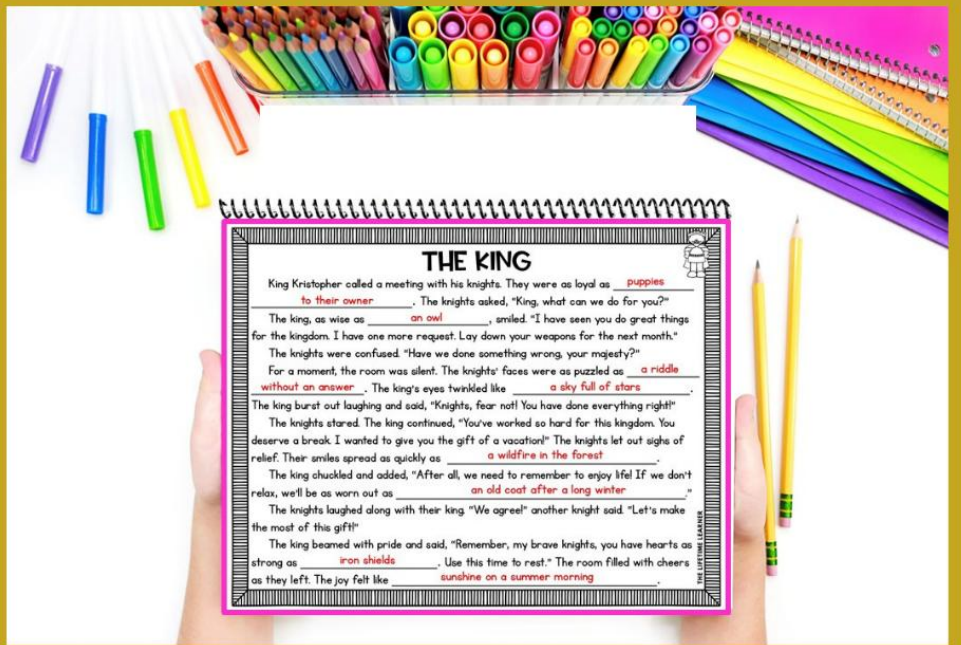 THE KING
King Kristopher called a meeting with his knights. They were as loyal as puppies
to their owner. The knights asked, "King, what can we do for you?"
The king, as wise as an owl, smiled. "I have seen you do great things
for the kingdom. I have one more request. Lay down your weapons for the next month."
The knights were confused. "Have we done something wrong, your majesty?"
For a moment, the room was silent. The knights' faces were as puzzled as a riddle
without an answer. The king's eyes twinkled like a sky full of stars.
The king burst out laughing and said, "Knights, fear not! You have done everything right!"
The knights stared. The king continued, "You've worked so hard for this kingdom. You
deserve a break. I wanted to give you the gift of a vacation!" The knights let out sighs of
relief. Their smiles spread as quickly as a wildfire in the forest.
The king chuckled and added, "After all, we need to remember to enjoy life! If we don't
relax, we'll be as worn out as an old coat after a long winter."
The knights laughed along with their king. "We agree!" another knight said. "Let's make
the most of this gift!"
The king beamed with pride and said, "Remember, my brave knights, you have hearts as
strong as iron shields. Use this time to rest." The room filled with cheers
as they left. The joy felt like sunshine on a summer morning.
THE LIFETIME LEARNER